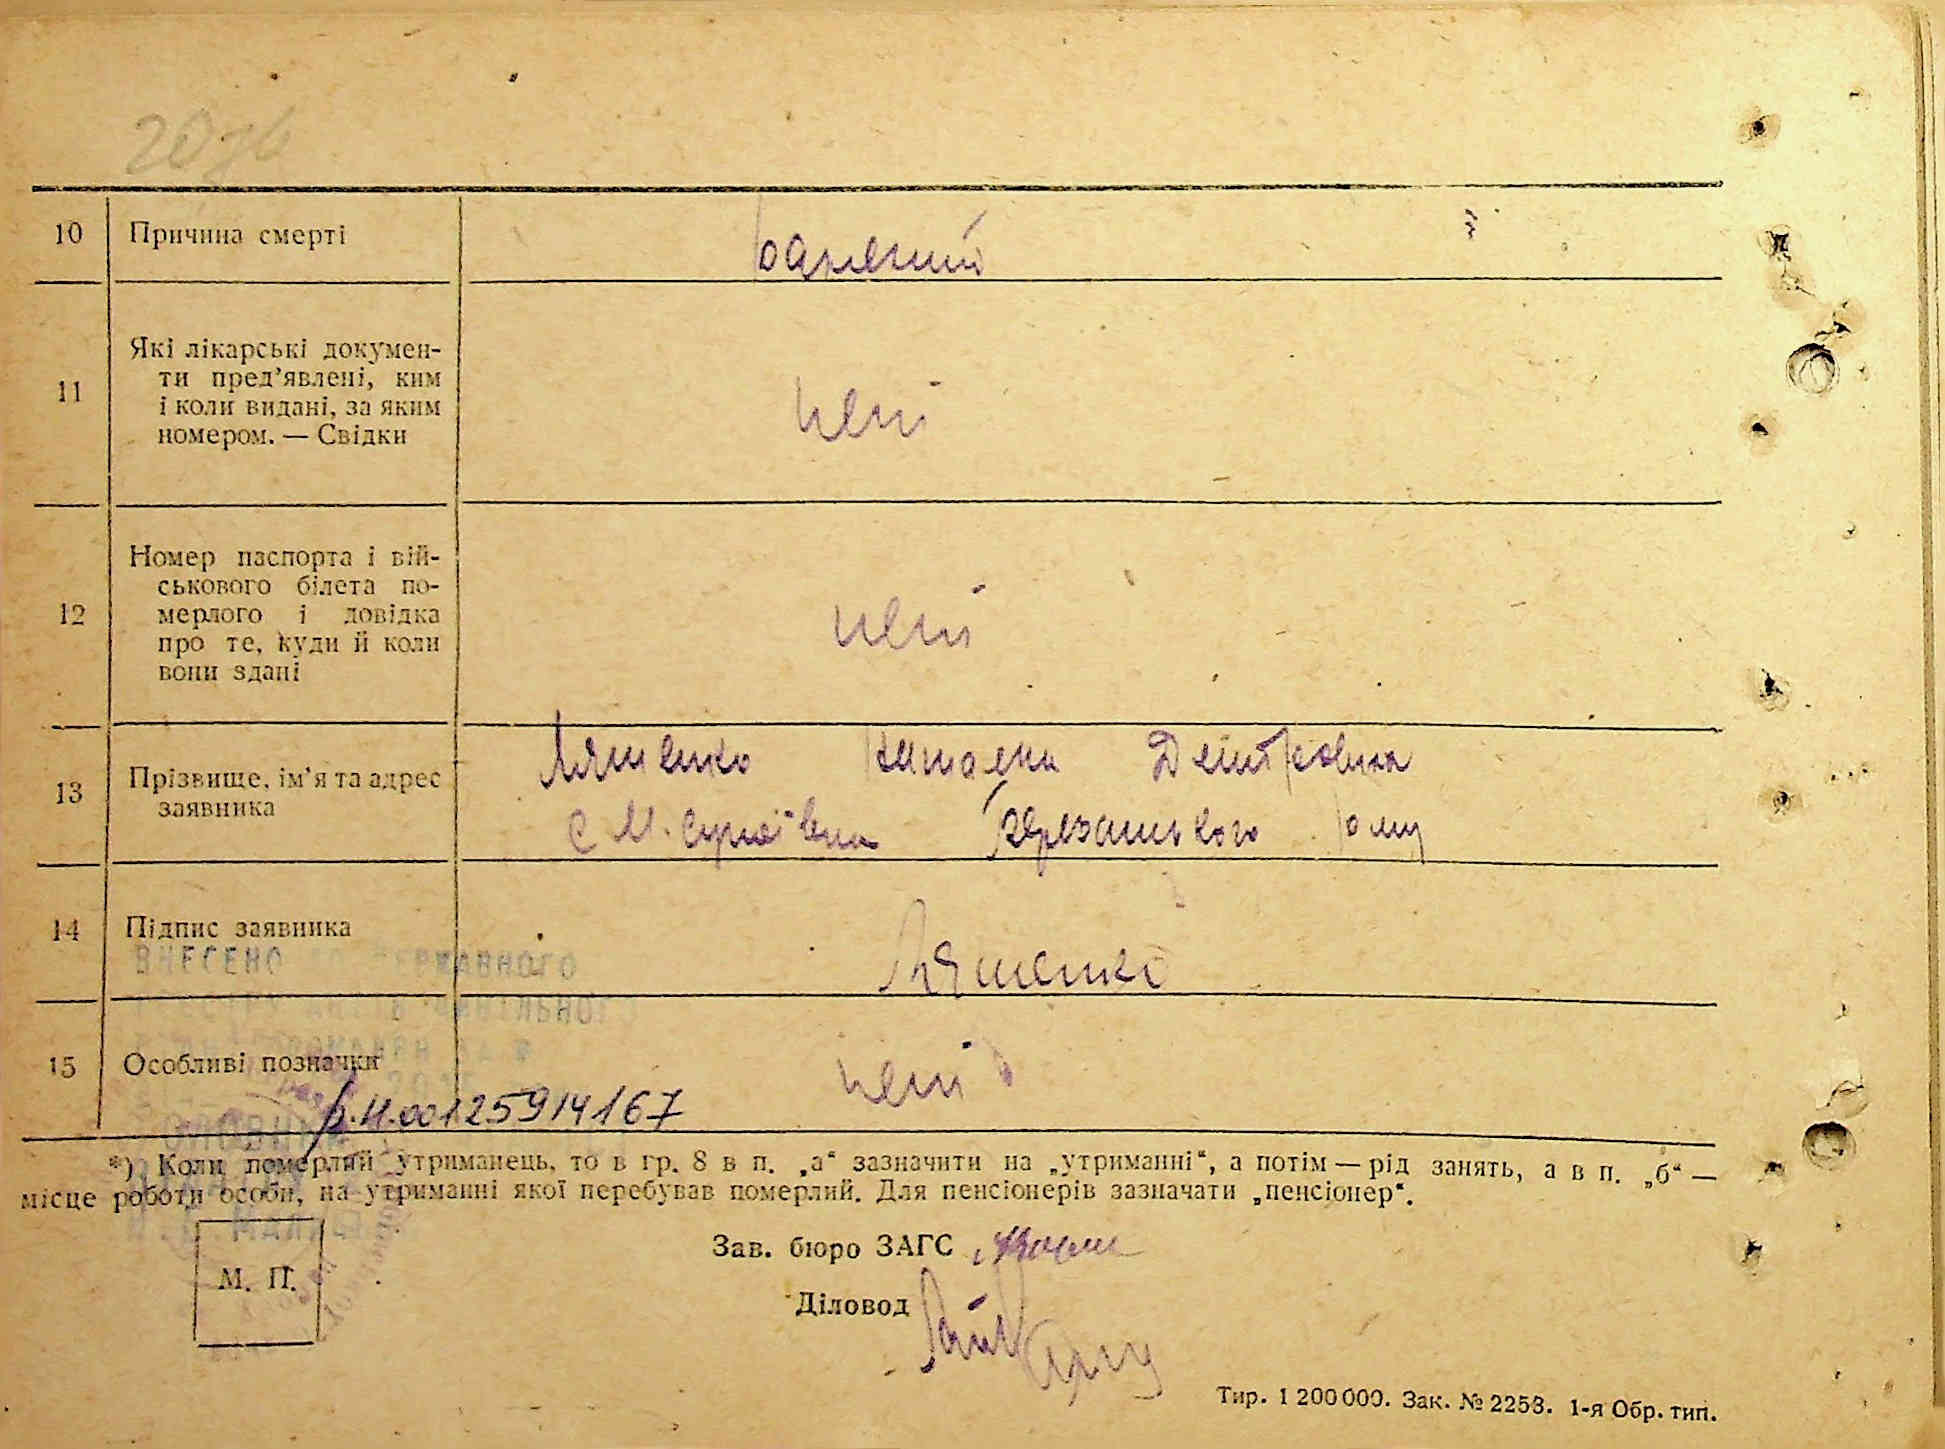 10 Причина смерті
11 Які лікарські докумен-
ти пред’явлені, ким
і коли видані, за яким
номером. — Свідки
нет
12 Номер паспорта і вій-
ськового білета по-
мерлого і довідка
про те, куди й коли
вони здані
нет
13 Прізвище, ім’я та адрес
заявника
Ляшенко Дмитровна
с М. Березанського р-ну
14 Підпис заявника
Ляшенко
ВНЕСЕНО ДО ДЕРЖАВНОГО
РЕЄСТРУ АКТІВ ЦИВІЛЬНОГО
15 Особливі позначки
нет
р.н.00125914167
*) Коли померлий утриманець, то в гр. 8 в п. „а“ зазначити на „утриманні“, а потім — рід занять, а в п. „б“ —
місце роботи особи, на утриманні якої перебував померлий. Для пенсіонерів зазначати „пенсіонер“.
Зав. бюро ЗАГС
М. П.
Діловод
Тир. 1 200 000. Зак. № 2253. 1-я Обр. тип.